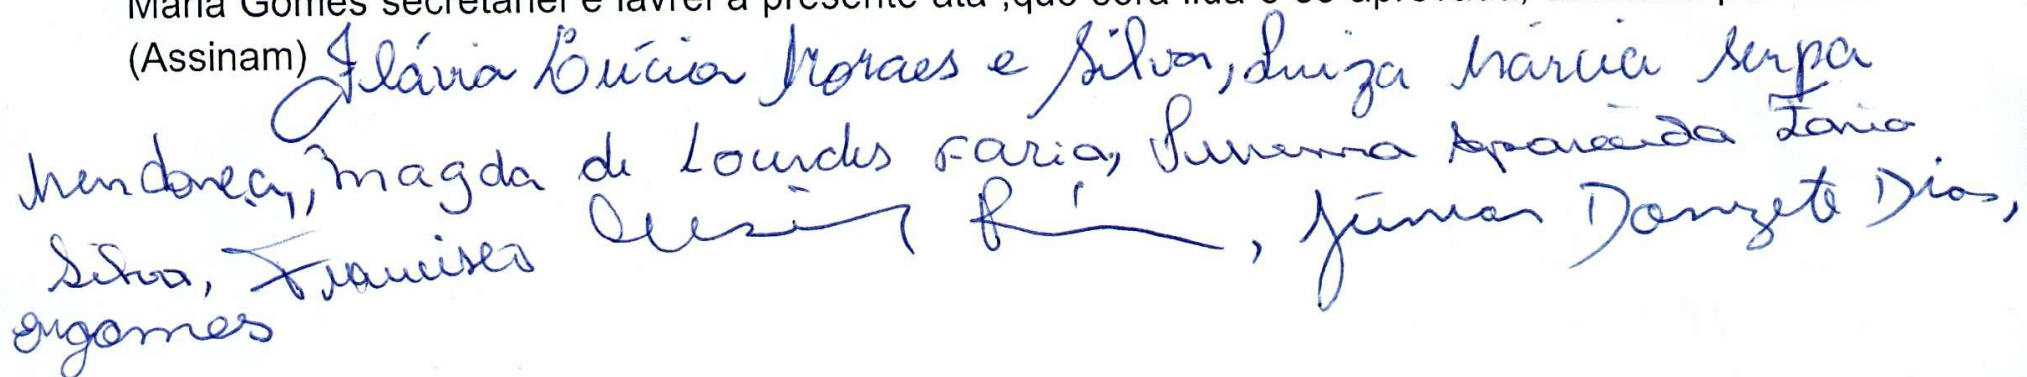 Maria Gomes secretariei e lavrei a presente ata ,que será lida e se aprovada,
(Assinam) Flávia Lúcia Moraes e Silva, Luiza Márcia Serpa
Mendonça, Magda de Lourdes Faria, Aparecida Faria
Silva, Francisco , Júnior Donizete Dias,